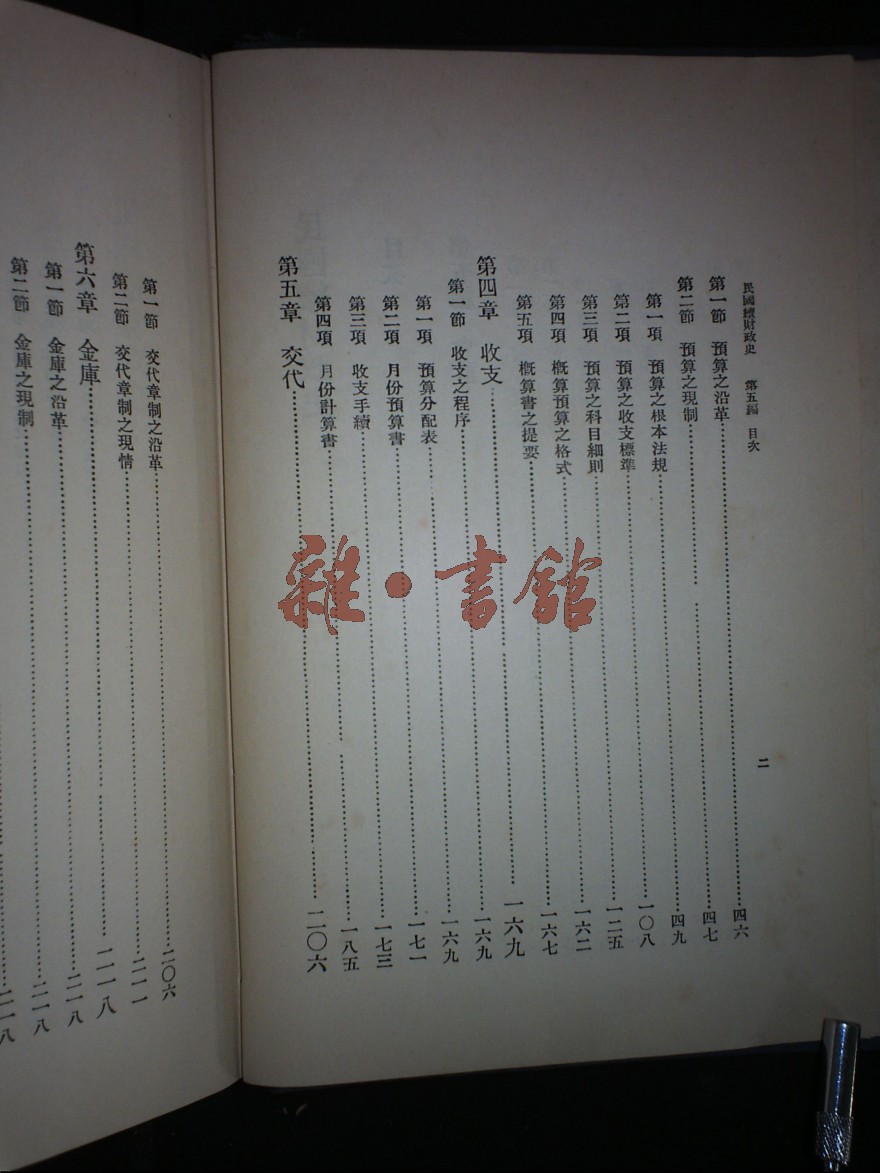 民國續財政史 第五編 目次 二
第一節 預算之沿革 四六
第二節 預算之現制 四七
第一項 預算之根本法規 四九
第二項 預算之收支標準 一〇八
第三項 預算之科目細則 一二五
第四項 概算預算之格式 一六二
第五項 概算書之提要 一六七
第四章 收支 一六九
第一節 收支之程序 一六九
第一項 預算分配表 一六九
第二項 月份預算書 一七一
第三項 收支手續 一七三
第四項 月份計算書 一八五
第五章 交代 二〇六
第一節 交代章制之沿革 二〇六
第二節 交代章制之現情 二一一
第六章 金庫 二一八
第一節 金庫之沿革 二一八
第二節 金庫之現制 二一八
二一八
雜·書館